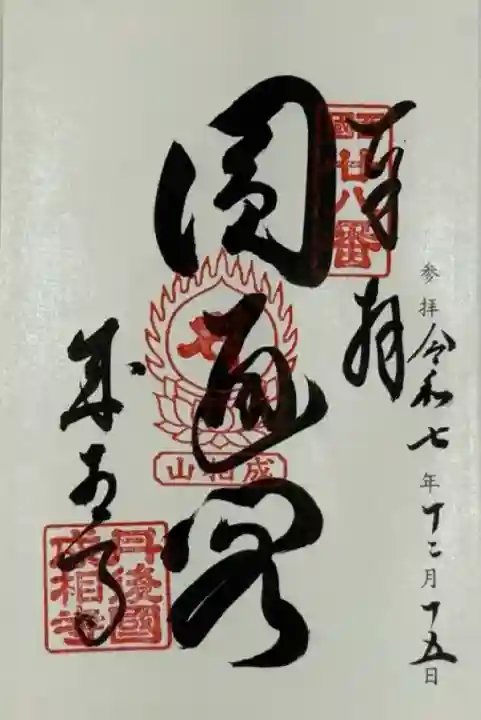 参拝令和七年十二月十五日
奉拝
西國
廿八番
圓通閣
成相山
成相寺
丹後國
成相寺